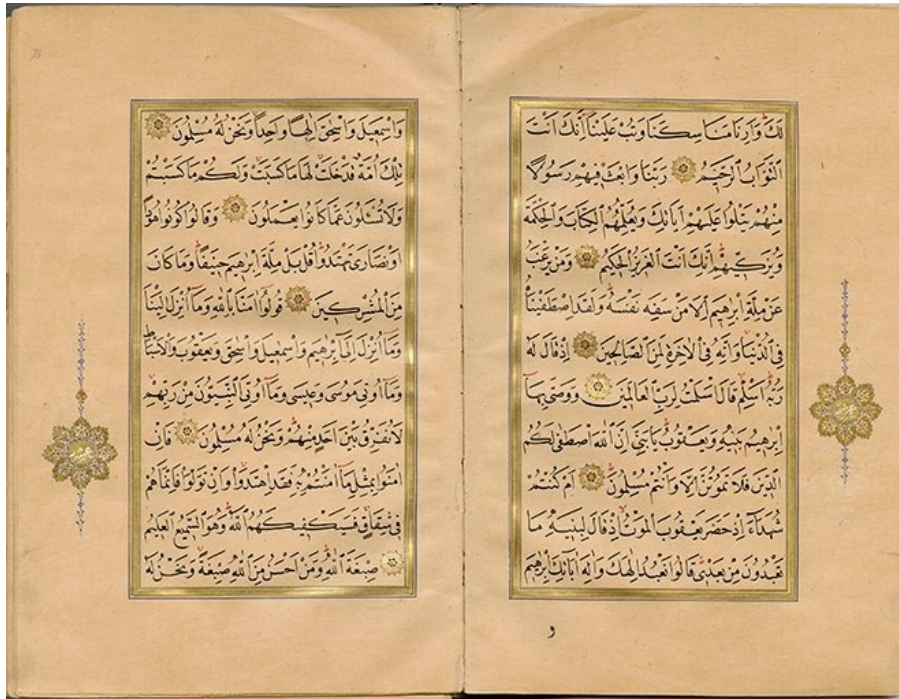 لَكَ وَاَرِنَا مَنَاسِكَنَا وَتُبْ عَلَيْنَا اِنَّكَ اَنْتَ
التَّوَّابُ الرَّحٖيمُ رَبَّنَا وَابْعَثْ فٖيهِمْ رَسُولًا
مِنْهُمْ يَتْلُوا عَلَيْهِمْ اٰيَاتِكَ وَيُعَلِّمُهُمُ الْكِتَابَ وَالْحِكْمَةَ
وَيُزَكّٖيهِمْ اِنَّكَ اَنْتَ الْعَزٖيزُ الْحَكٖيمُ وَمَنْ يَرْغَبُ
عَنْ مِلَّةِ اِبْرٰهٖيمَ اِلَّا مَنْ سَفِهَ نَفْسَهُ وَلَقَدِ اصْطَفَيْنَاهُ
فِي الدُّنْيَا وَاِنَّهُ فِي الْاٰخِرَةِ لَمِنَ الصَّالِحٖينَ اِذْ قَالَ لَهُ
رَبُّهُ اَسْلِمْ قَالَ اَسْلَمْتُ لِرَبِّ الْعَالَمٖينَ وَوَصّٰى بِهَا
اِبْرٰهٖيمُ بَنٖيهِ وَيَعْقُوبُ يَا بَنِيَّ اِنَّ اللّٰهَ اصْطَفٰى لَكُمُ
الدّٖينَ فَلَا تَمُوتُنَّ اِلَّا وَاَنْتُمْ مُسْلِمُونَ اَمْ كُنْتُمْ
شُهَدَاءَ اِذْ حَضَرَ يَعْقُوبَ الْمَوْتُ اِذْ قَالَ لِبَنٖيهِ مَا
تَعْبُدُونَ مِنْ بَعْدٖي قَالُوا نَعْبُدُ اِلٰهَكَ وَاِلٰهَ اٰبَائِكَ اِبْرٰهٖيمَ
و
وَاِسْمٰعٖيلَ وَاِسْحٰقَ اِلٰهًا وَاحِدًا وَنَحْنُ لَهُ مُسْلِمُونَ
تِلْكَ اُمَّةٌ قَدْ خَلَتْ لَهَا مَا كَسَبَتْ وَلَكُمْ مَا كَسَبْتُمْ
وَلَا تُسْـَٔلُونَ عَمَّا كَانُوا يَعْمَلُونَ وَقَالُوا كُونُوا هُودًا
اَوْ نَصَارٰى تَهْتَدُوا قُلْ بَلْ مِلَّةَ اِبْرٰهٖيمَ حَنٖيفًا وَمَا كَانَ
مِنَ الْمُشْرِكٖينَ قُولُوا اٰمَنَّا بِاللّٰهِ وَمَا اُنْزِلَ اِلَيْنَا
وَمَا اُنْزِلَ اِلٰى اِبْرٰهٖيمَ وَاِسْمٰعٖيلَ وَاِسْحٰقَ وَيَعْقُوبَ وَالْاَسْبَاطِ
وَمَا اُوتِيَ مُوسٰى وَعٖيسٰى وَمَا اُوتِيَ النَّبِيُّونَ مِنْ رَبِّهِمْ
لَا نُفَرِّقُ بَيْنَ اَحَدٍ مِنْهُمْ وَنَحْنُ لَهُ مُسْلِمُونَ فَاِنْ
اٰمَنُوا بِمِثْلِ مَا اٰمَنْتُمْ بِهٖ فَقَدِ اهْتَدَوْا وَاِنْ تَوَلَّوْا فَاِنَّمَا هُمْ
فٖي شِقَاقٍ فَسَيَكْفٖيكَهُمُ اللّٰهُ وَهُوَ السَّمٖيعُ الْعَلٖيمُ
صِبْغَةَ اللّٰهِ وَمَنْ اَحْسَنُ مِنَ اللّٰهِ صِبْغَةً وَنَحْنُ لَهُ